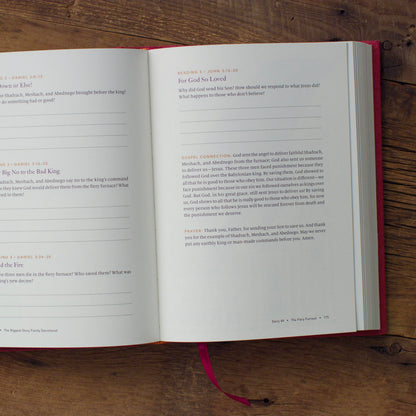 NG 1 • DANIEL 3:8–15
Down or Else!
re Shadrach, Meshach, and Abednego brought before the king?
do something bad or good?
NG 2 • DANIEL 3:16–23
Big No to the Bad King
Shadrach, Meshach, and Abednego say no to the king's command
they knew God would deliver them from the fiery furnace? What
ened to them?
NG 3 • DANIEL 3:24–30
d the Fire
three men die in the fiery furnace? Who saved them? What was
ing's new decree?
• The Biggest Story Family Devotional
READING 5 • JOHN 3:16–20
For God So Loved
Why did God send his Son? How should we respond to what Jesus did?
What happens to those who don't believe?
GOSPEL CONNECTION: God sent the angel to deliver faithful Shadrach,
Meshach, and Abednego from the furnace; God also sent us someone
to deliver us—Jesus. These three men faced punishment because they
followed God over the Babylonian king. By saving them, God showed to
all that he is good to those who obey him. Our situation is different—we
face punishment because in our sin we followed ourselves as kings over
God. But God, in his great grace, still sent Jesus to deliver us! By saving
us, God shows to all that he is really good to those who obey him, for now
every person who follows Jesus will be rescued forever from death and
the punishment we deserve.
PRAYER: Thank you, Father, for sending your Son to save us. And thank
you for the example of Shadrach, Meshach, and Abednego. May we never
put any earthly king or man-made commands before you. Amen.
Story 49 • The Fiery Furnace • 175